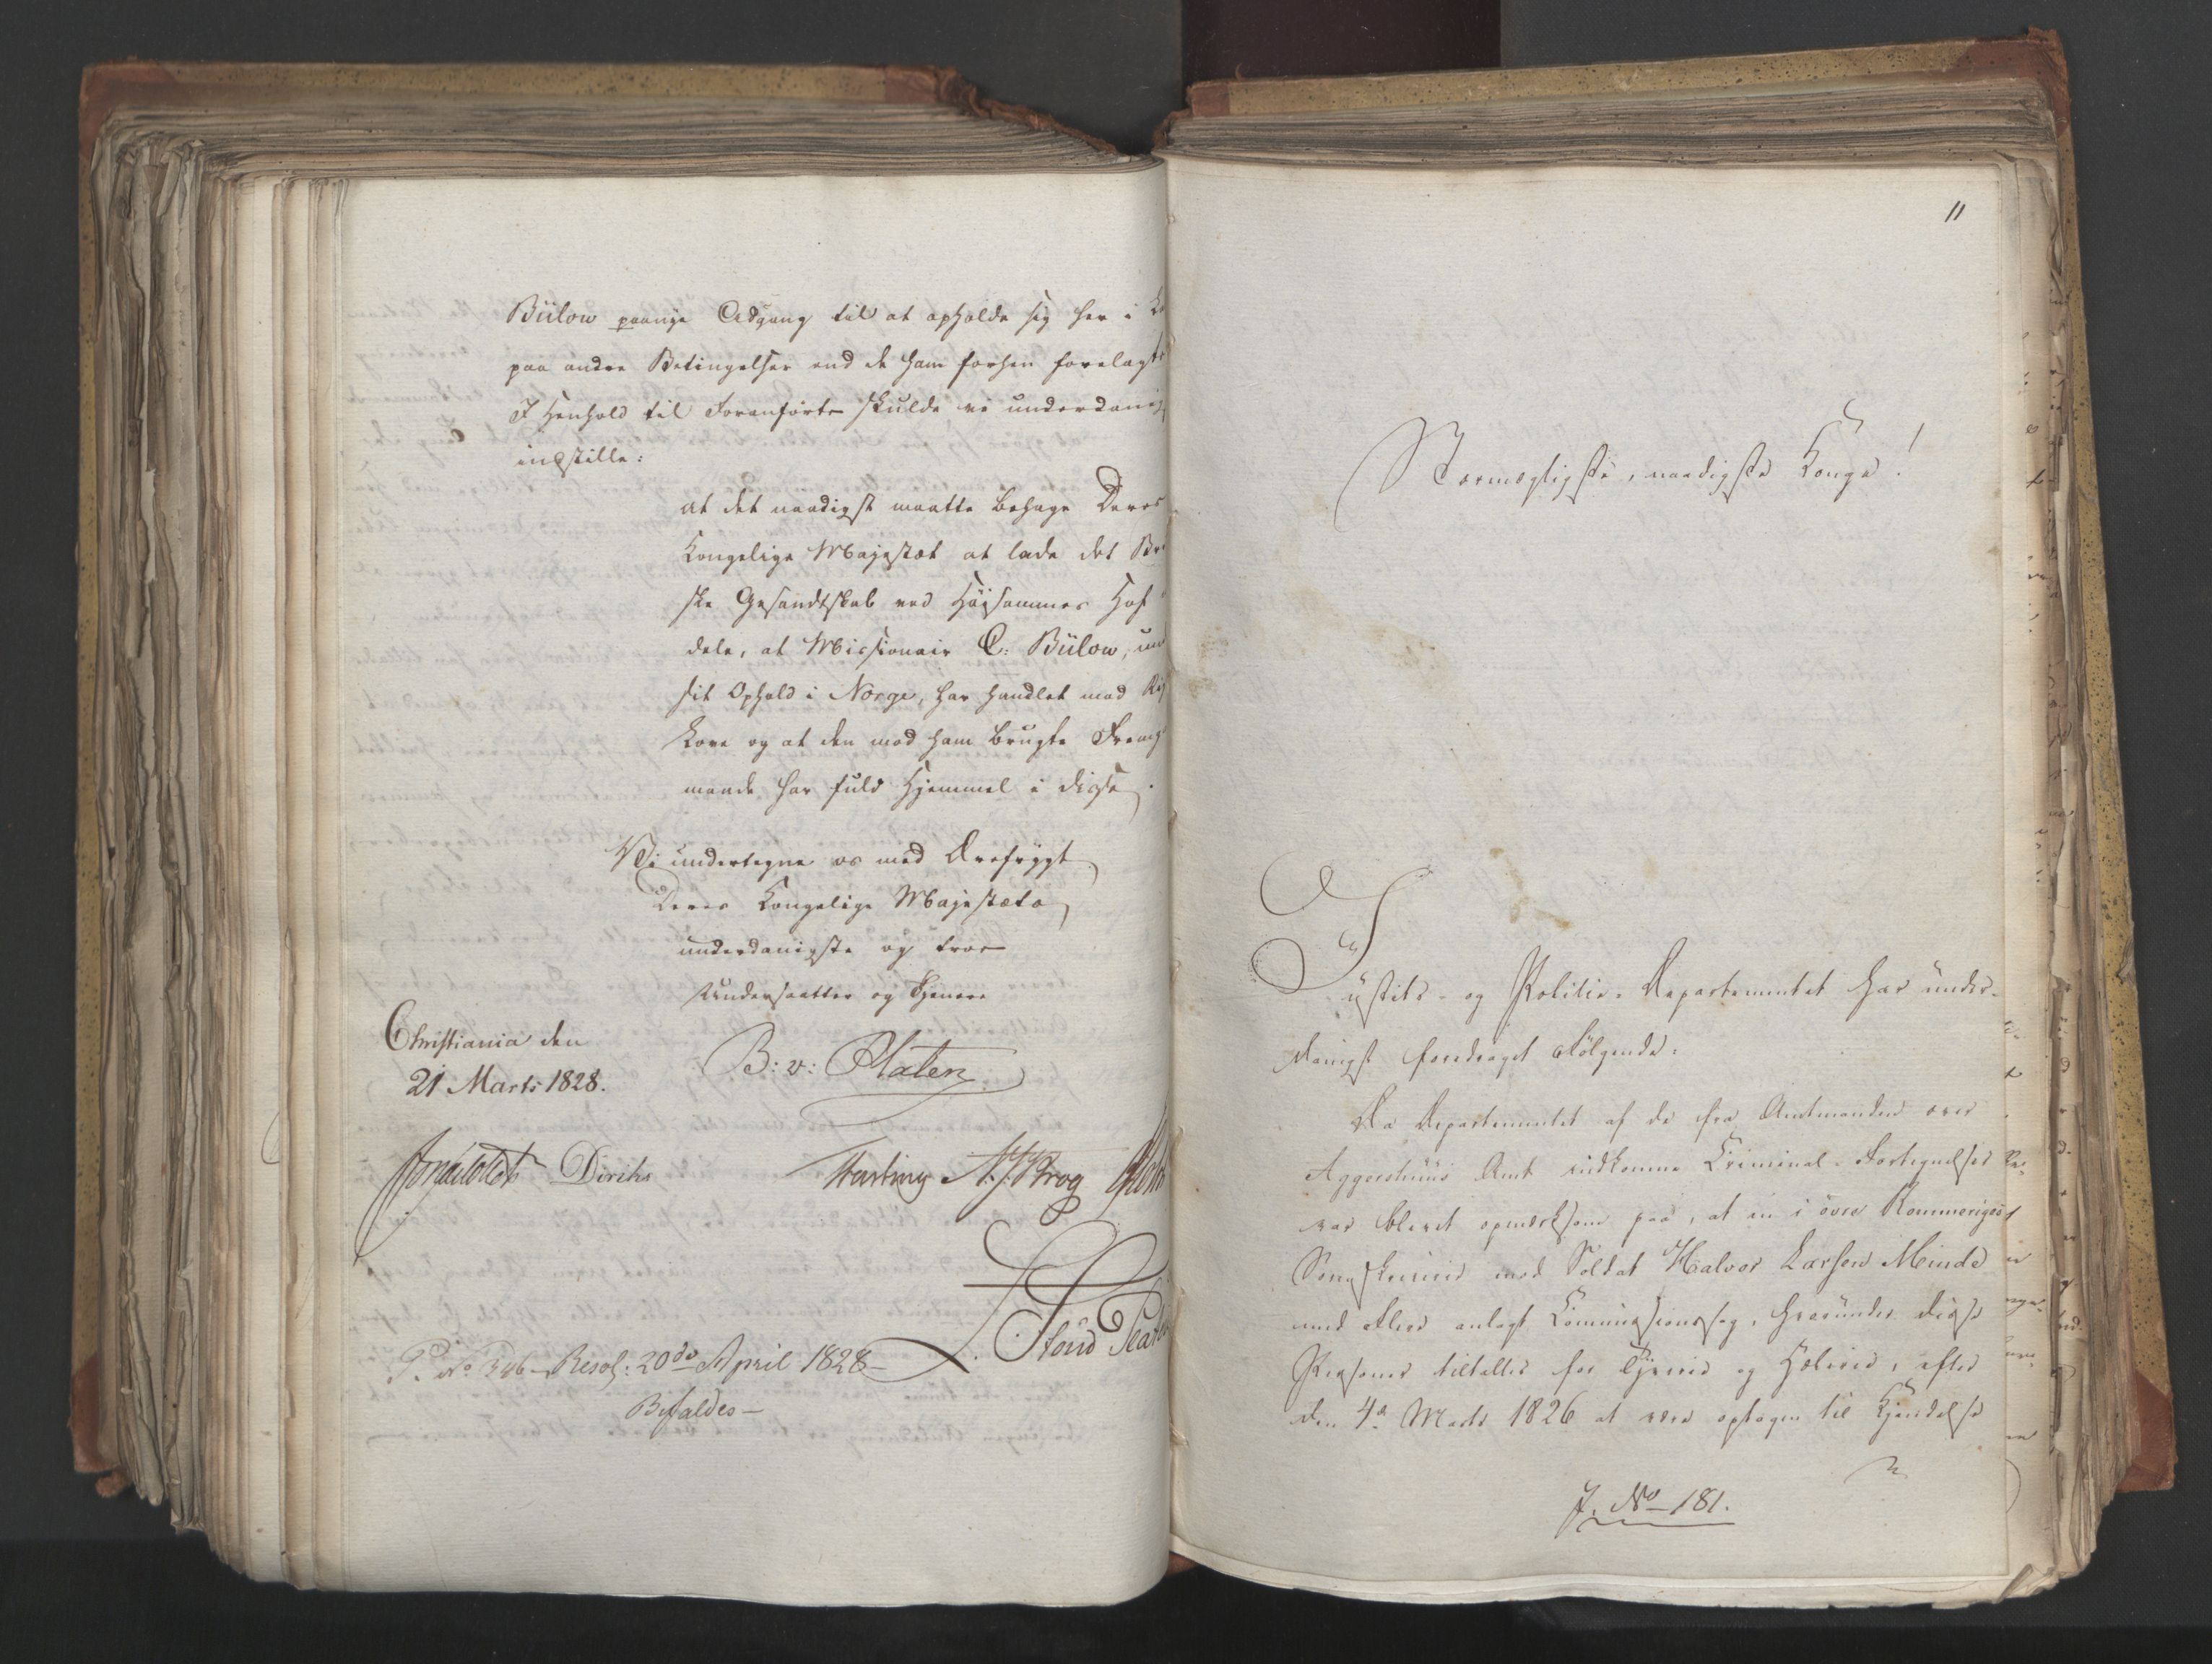 Bülow paanye Adgang til at opholde sig her i
paa andre Betingelser end de ham forhen forelagte
I Henhold til Foranførte skulde vi underdanigst
indstille:
at det naadigst maatte behage Deres
Kongelige Majestæt at lade det
ske Gesandtskab ved Høisammes Hof
dele, at Missionair C: Bülow, und
sit Ophold i Norge, har handlet mod
Love og at den mod ham brugte Fremg
maade har fuld Hjemmel i disse.
Vi undertegne os med Ærefrygt
Deres Kongelige Majestæts
underdanigste og troe
Undersaatter og Tjenere
Christiania den
21 Marts 1828.
B: v: Platen
Diriks
N. J. Krog
P. No 346 - Resol: 20de April 1828 -
Bifaldes -
11
Stormægtigste, naadigste Konge!
Justits- og Politie-Departementet har under-
danigst foredraget Følgende:
Da Departementet af de fra Amtmanden over
Aggershuus Amt indkomne Criminal-Fortegnelser
var blevet opmærksom paa, at en i øvre Rommeriges
Sorenskriverie mod Soldat Halvor Larsen Minde
med Flere anlagt Commissionssag, hvorunder disse
Personer tiltaltes for Tyverie og Hælerie, efter
den 4de Marts 1826 at være optagen til Kjendelse
J. No 181.